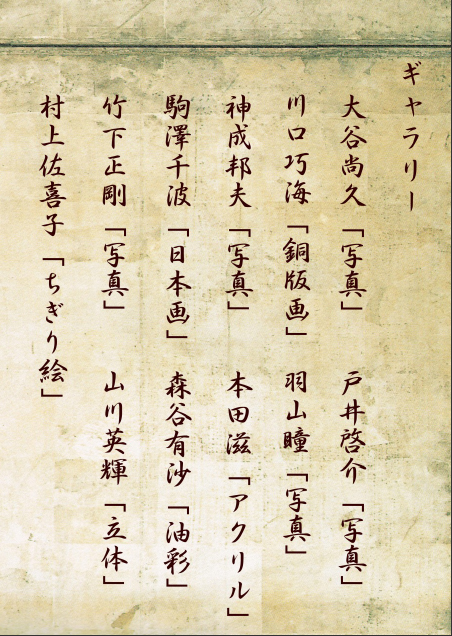 ギャラリー
大谷尚久「写真」 戸井啓介「写真」
川口巧海「銅版画」 羽山瞳「写真」
神成邦夫「写真」 本田滋「アクリル」
駒澤千波「日本画」 森谷有沙「油彩」
竹下正剛「写真」 山川英輝「立体」
村上佐喜子「ちぎり絵」